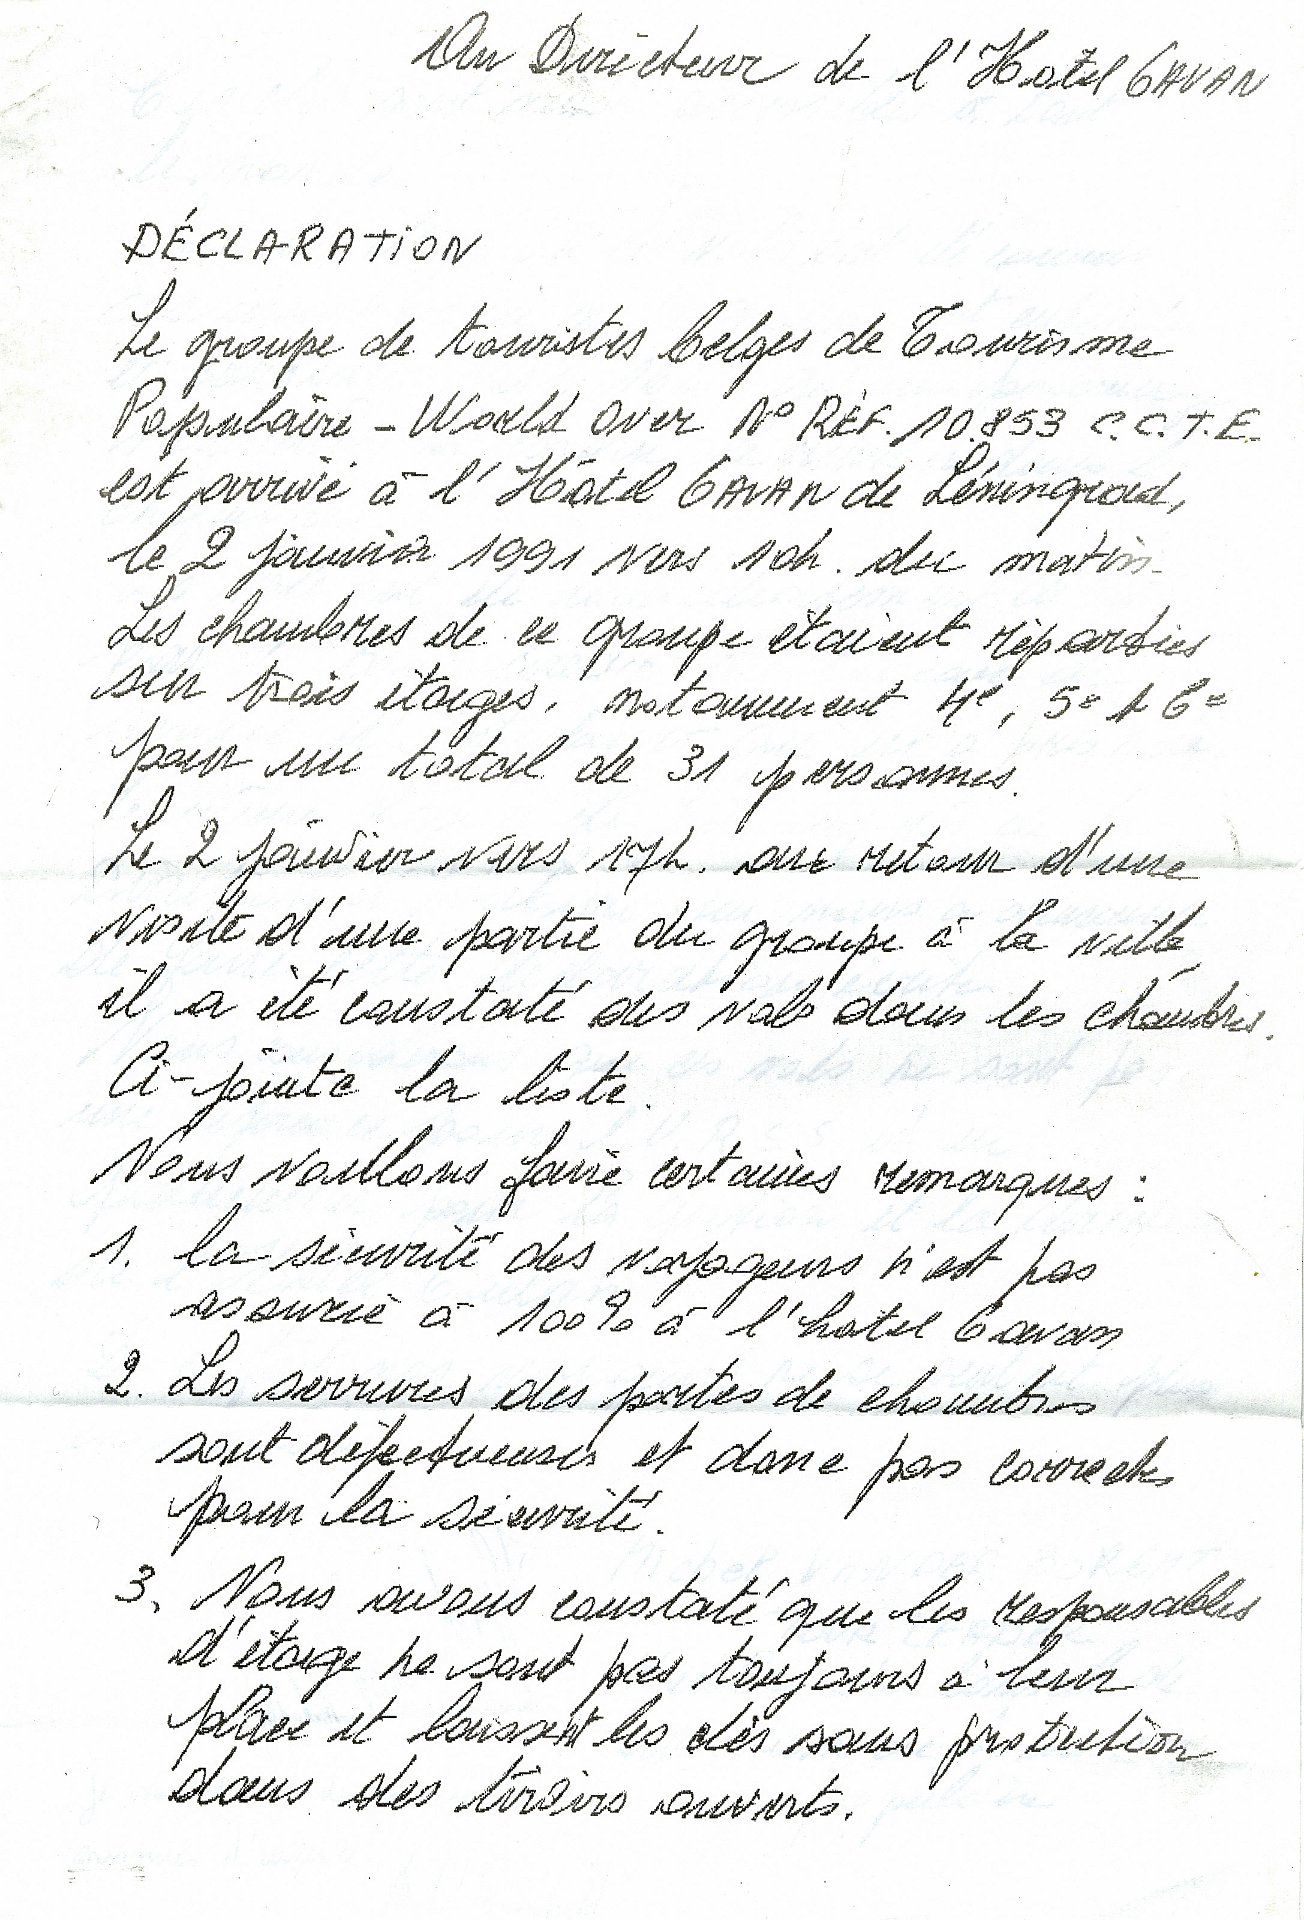 Au Directeur de l'Hotel GAVAN
DÉCLARATION
Le groupe de touristes belges de Tourisme
Populaire - World Over N° RÉF. 10.853 C.C.T.E.
est arrivé à l'Hôtel GAVAN de Léningrad,
le 2 janvier 1991 vers 10h. du matin.
Les chambres de ce groupe étaient réparties
sur trois étages, notamment 4e, 5e & 6e
pour un total de 31 personnes.
Le 2 janvier vers 17h. au retour d'une
visite d'une partie du groupe à la ville,
il a été constaté des vols dans les chambres.
Ci-jointe la liste.
Nous voullons faire certaines remarques :
1. la sécurité des voyageurs n'est pas
assurée à 100% à l'hotel Gavan
2. Les serrures des portes de chambres
sont défectueuses et donc pas correctes
pour la sécurité.
3. Nous avons constaté que les responsables
d'étage ne sont pas toujours à leur
place et laissent les clés sans protection
dans des tiroirs ouverts.